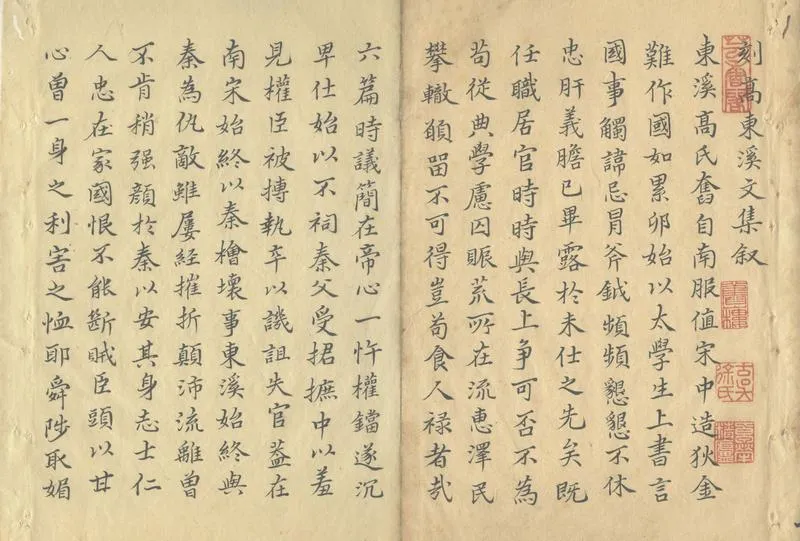 刻高東溪文集叙
東溪髙氏奮自南服值宋中造狄金
難作國如累卵始以太學生上書言
國事觸諱忌冐斧鉞頻頻懇懇不休
忠肝義膽已畢露於未仕之先矣既
任職居官時時與長上争可否不為
苟從典學慮囚賑荒所在流惠澤民
攀轍願畱不可得豈苟食人祿者㢤
六篇時議簡在帝心一忤權鐺遂沉
卑仕始以不祠秦父受捃摭中以羞
見權臣被摶執卒以譏詛失官葢在
南宋始終以秦檜壞事東溪始終與
秦為仇敵雖屢經摧折顛沛流離曾
不肯稍强顔於秦以安其身志士仁
人忠在家國恨不能斷賊臣頭以甘
心曽一身之利害之恤耶舜陟取媚
徐氏